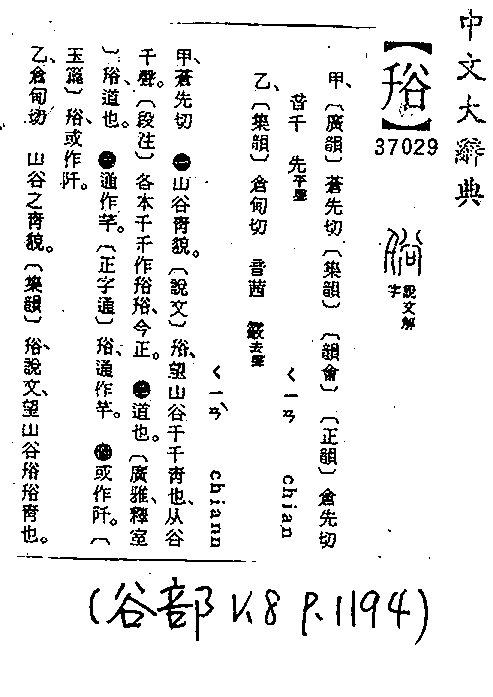 中文大辭典
【谸】
37029
說文解字
甲、〔廣韻〕蒼先切〔集韻〕〔韻會〕〔正韻〕倉先切
音千 先平聲 ㄑㄧㄢ chian
乙、〔集韻〕倉甸切 音茜 霰去聲
ㄑㄧㄢˋ chiann
甲、蒼先切 ㊀山谷靑貌。〔說文〕谸、望山谷千千靑也、从谷
千聲。〔段注〕各本千千作谸谸、今正。㊁道也。〔廣雅、釋室
〕谸、道也。㊂通作芊。〔正字通〕谸、通作芊。㊃或作阡。〔
玉篇〕谸、或作阡。
乙、倉甸切 山谷之靑貌。〔集韻〕谸、說文、望山谷谸谸靑也。
(谷部 V.8 P.1194)